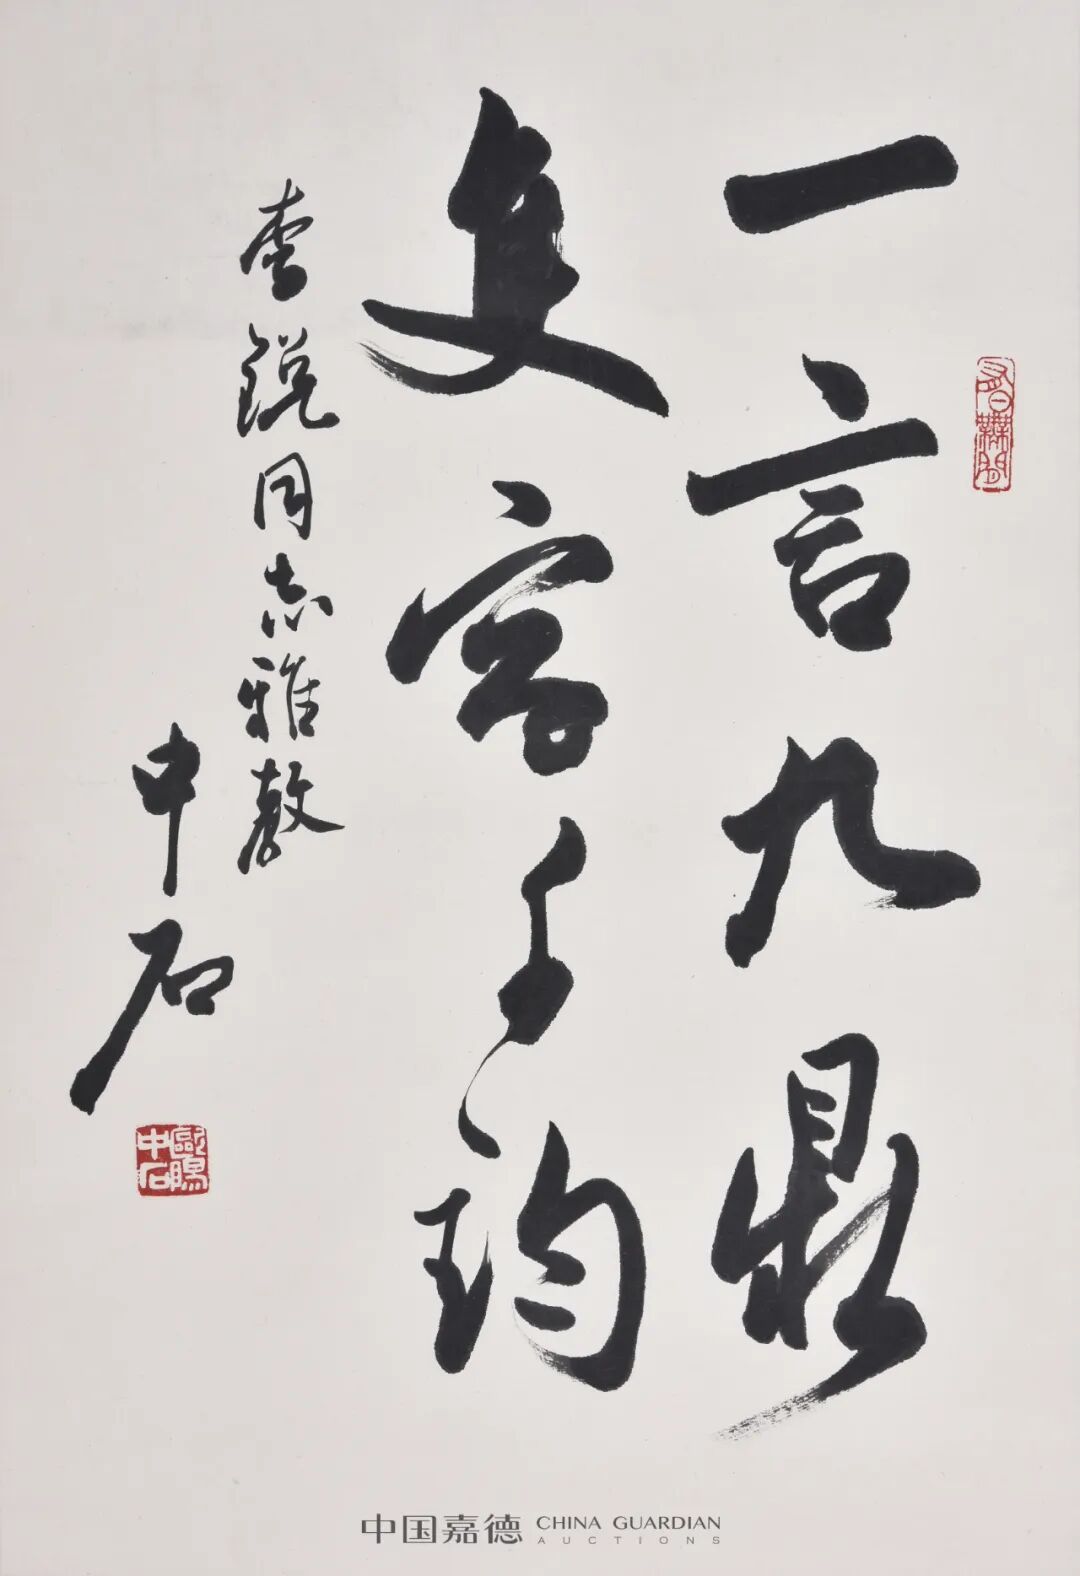 一言九鼎
隻字千鈞
李鋭同志雅教
中石
歐陽中石
中国嘉德 CHINA GUARDIAN
AUCTIONS